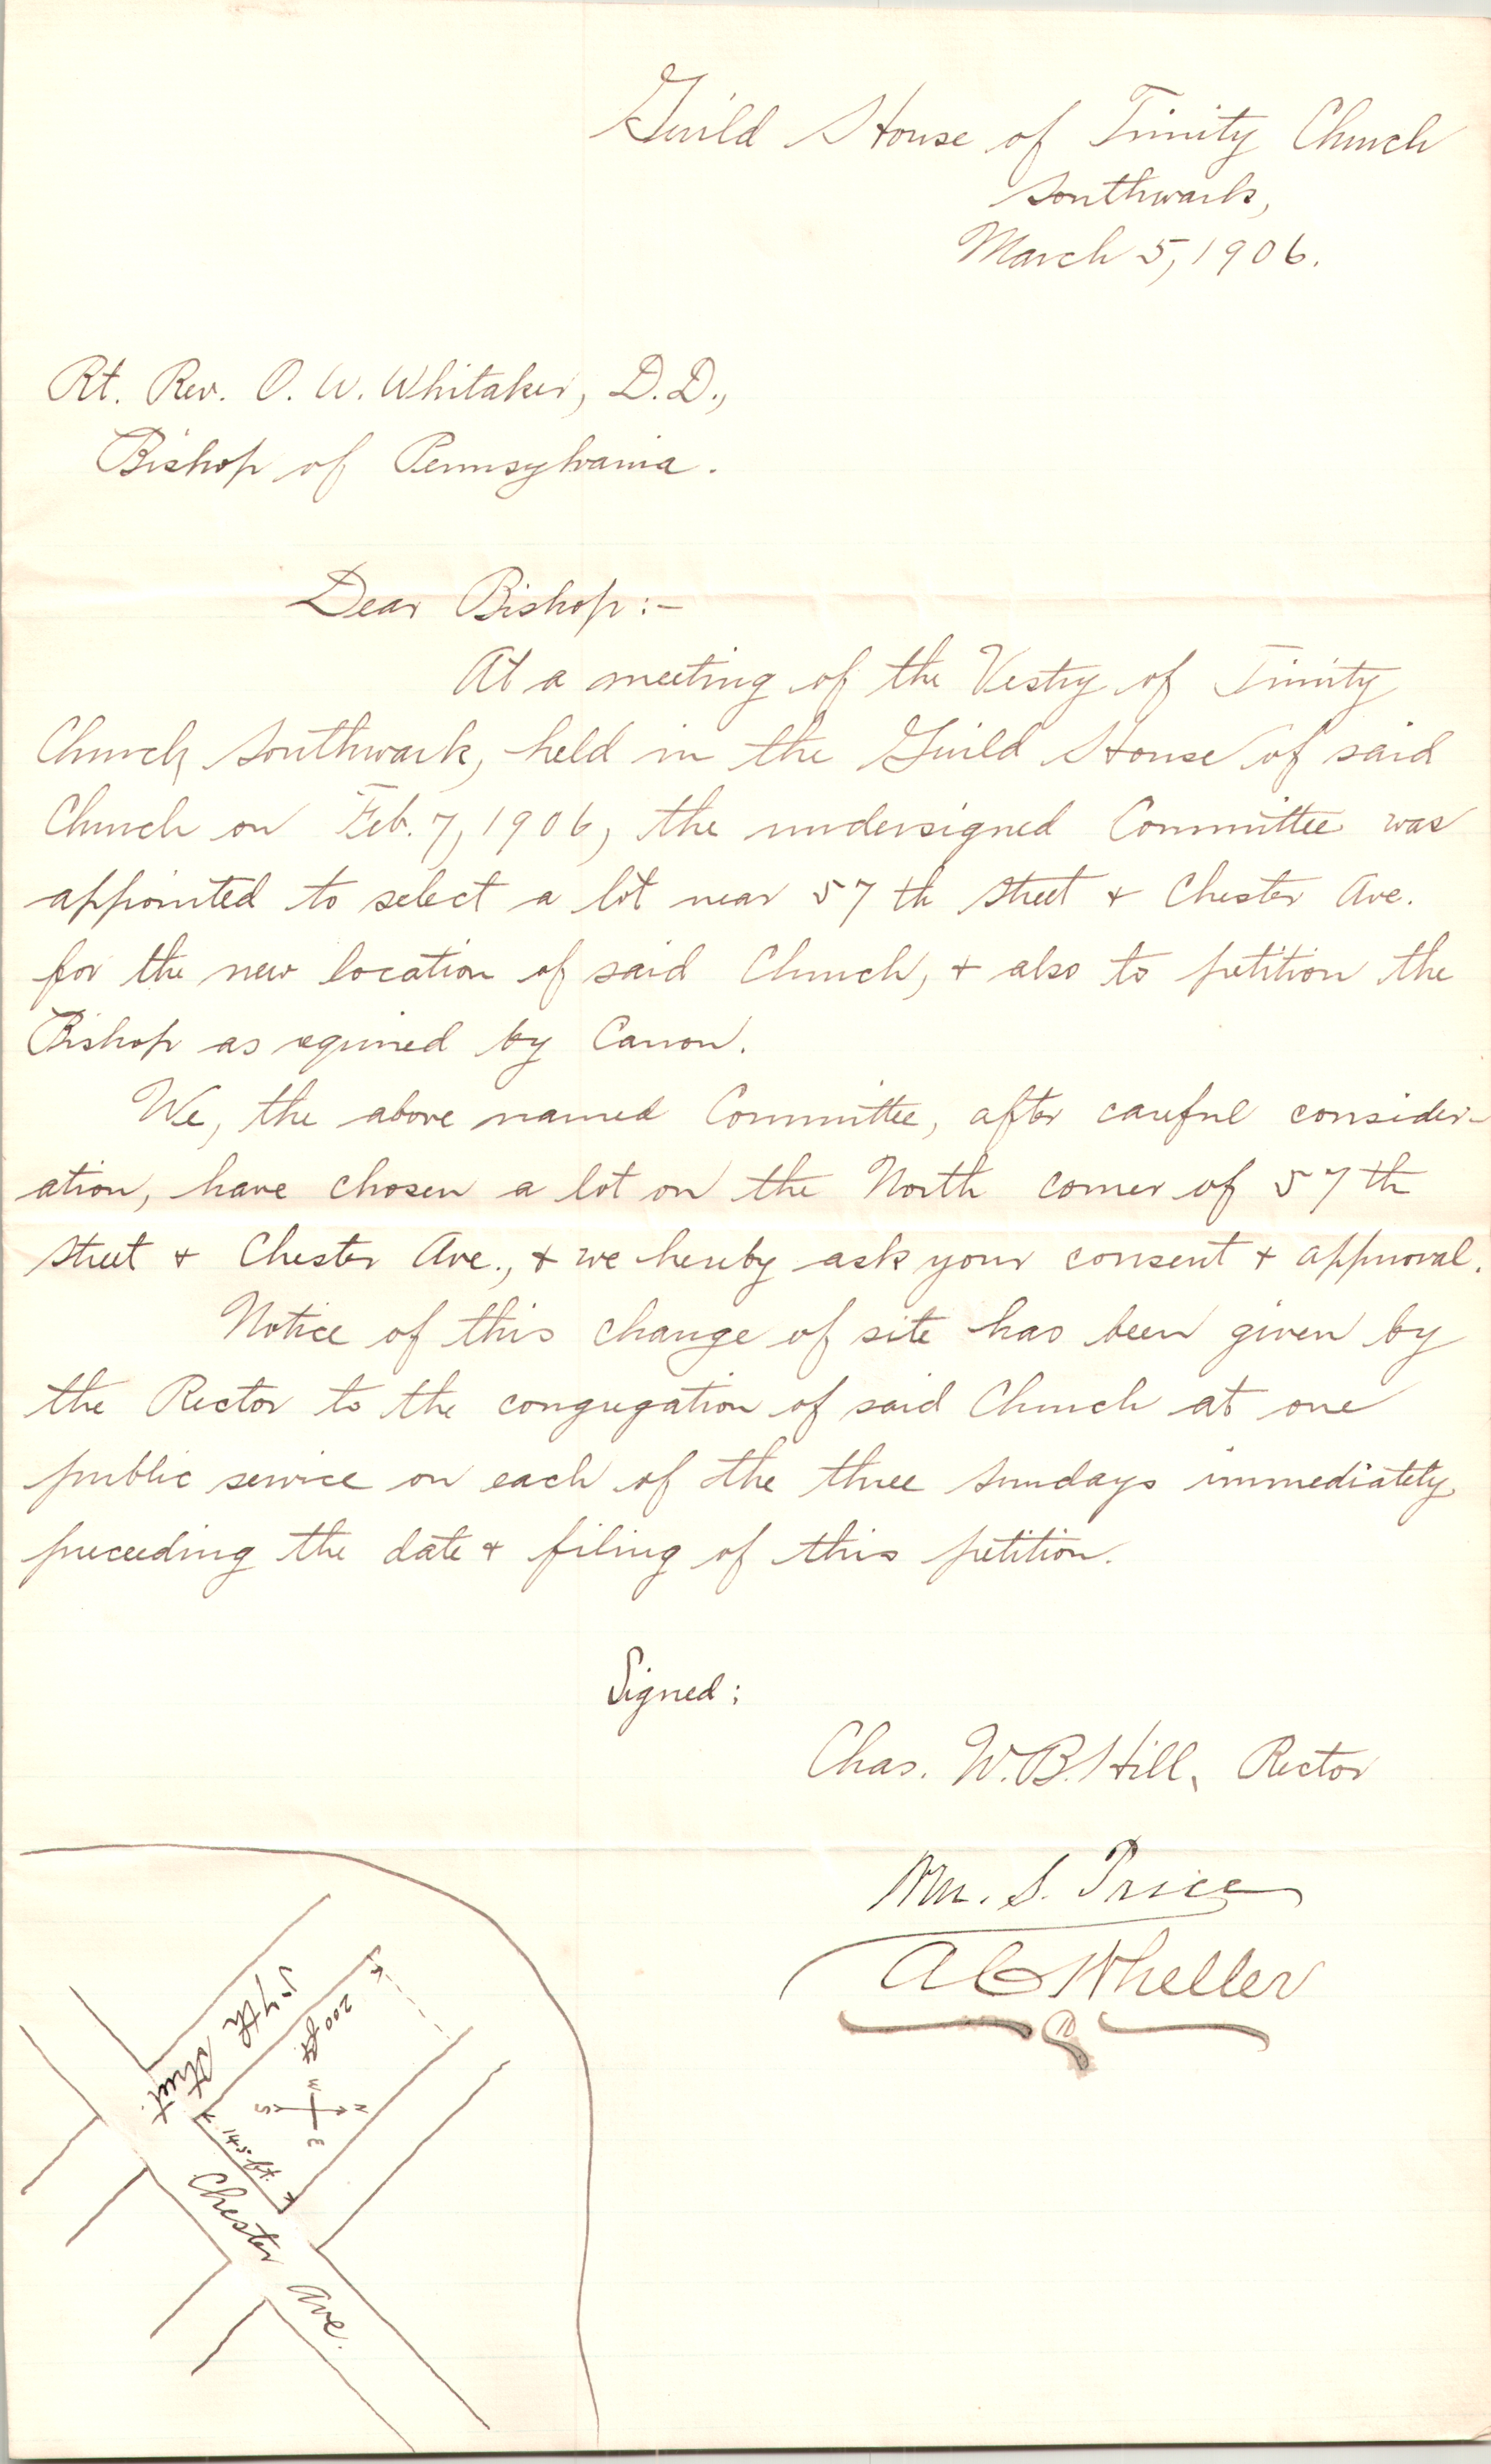 Guild House of Trinity Church
Southwark,
March 5, 1906.
Rt. Rev. O. W. Whitaker, D.D.,
Bishop of Pennsylvania.
Dear Bishop:-
At a meeting of the Vestry of Trinity
Church, Southwark, held in the Guild House of said
Church on Feb. 7, 1906, the undersigned Committee was
appointed to select a lot near 57th Street & Chester Ave.
for the new location of said Church, & also to petition the
Bishop as required by Canon.
We, the above named Committee, after careful consider-
ation, have chosen a lot on the North corner of 57th
Street & Chester Ave., & we hereby ask your consent & approval.
Notice of this change of site has been given by
the Rector to the congregation of said Church at one
public service on each of the three Sundays immediately
preceeding the date & filing of this petition.
Signed:
Chas. W. B. Hill, Rector
Wm. S. Price
A C Wheller
57th Street
200 ft.
W
S N
E
145 ft.
Chester Ave.